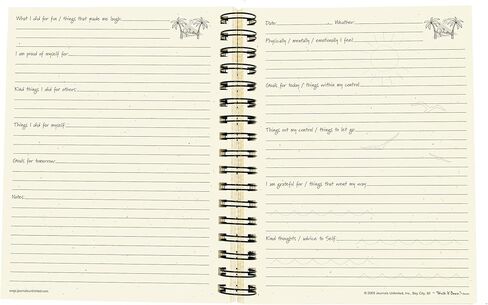 What I did for fun / things that made me laugh
I am proud of myself for
Kind things I did for others
Things I did for myself
Goals for tomorrow
Notes
www.journalsunlimited.com
Date
Weather
Physically / mentally / emotionally I feel
Goals for today / things within my control
Things out my control / things to let go
I am grateful for / things that went my way
Kind thoughts / advice to Self
© 2003 Journals Unlimited, Inc., Bay City, MI "Write it Down"